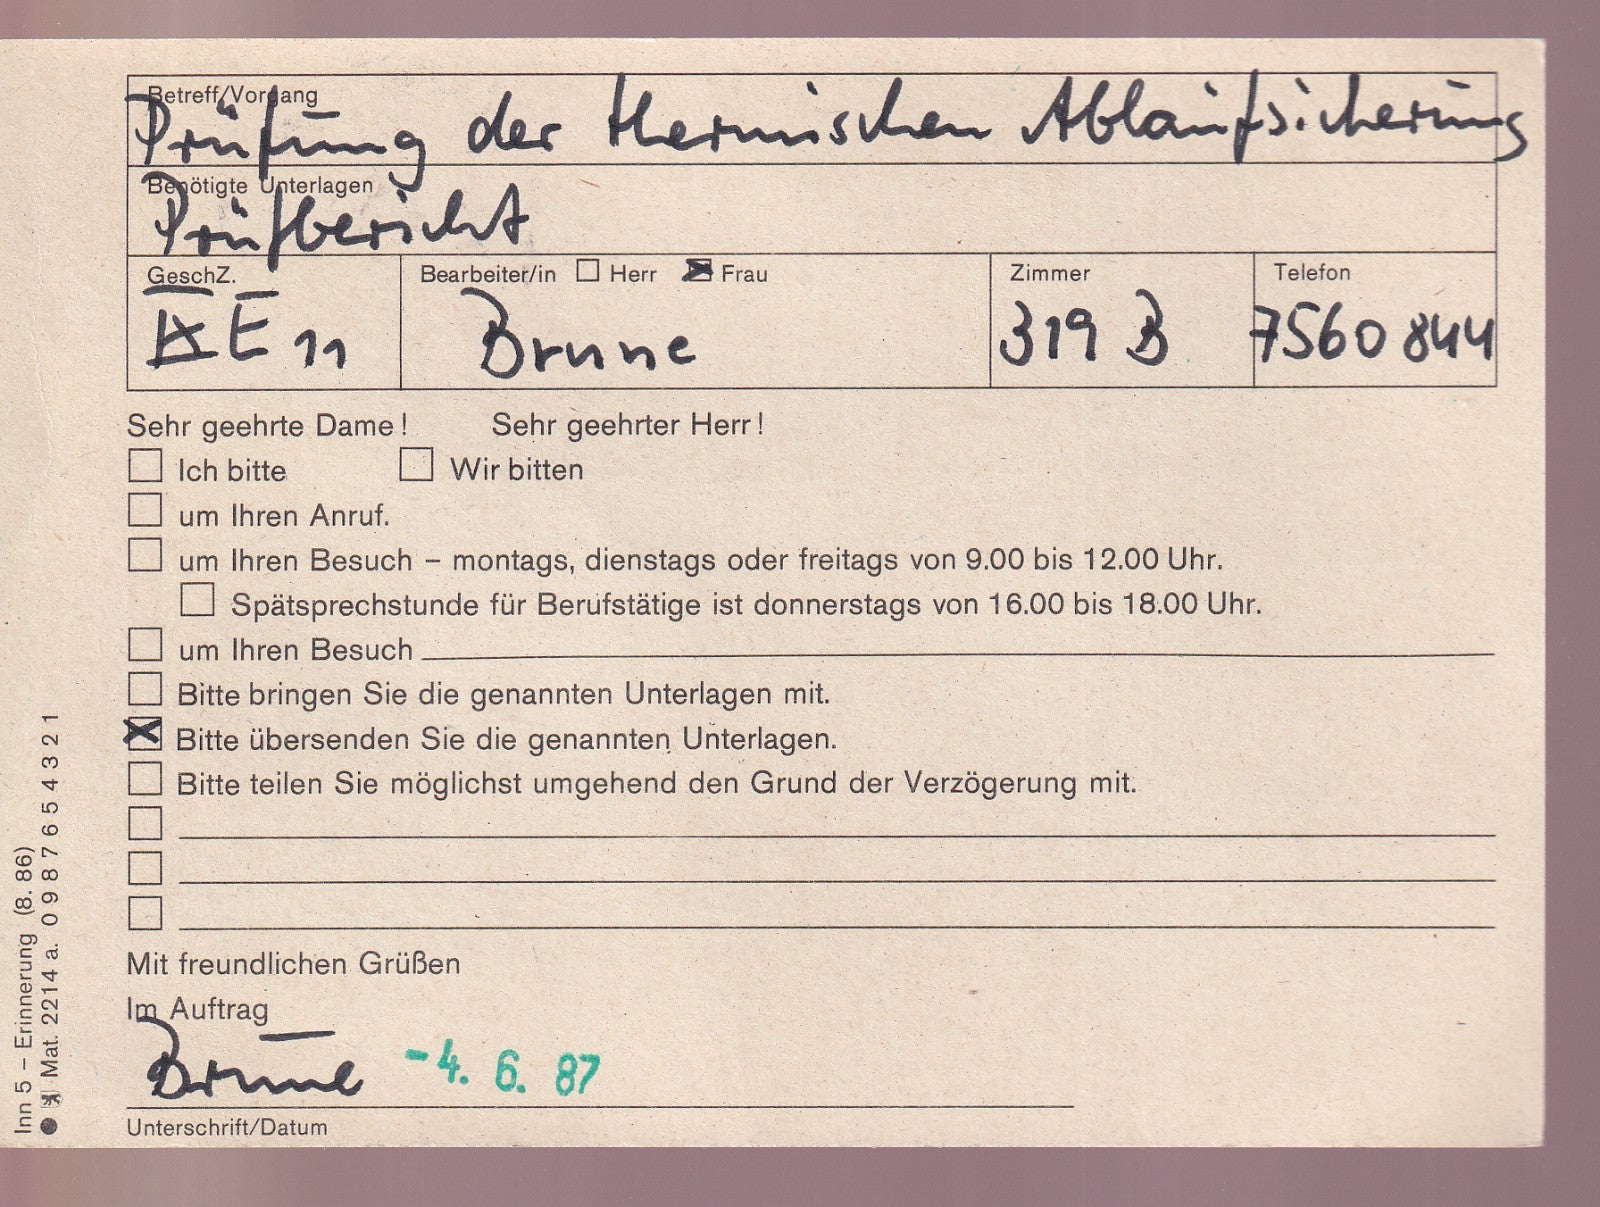 Betreff/Vorgang
Prüfung der thermischen Ablaufsicherung
Benötigte Unterlagen
Prüfbericht
GeschZ. Bearbeiter/in ☐ Herr ☒ Frau Zimmer Telefon
IX E 11 Brune 319 B 7560 844
Sehr geehrte Dame! Sehr geehrter Herr!
☐ Ich bitte ☐ Wir bitten
☐ um Ihren Anruf.
☐ um Ihren Besuch – montags, dienstags oder freitags von 9.00 bis 12.00 Uhr.
☐ Spätsprechstunde für Berufstätige ist donnerstags von 16.00 bis 18.00 Uhr.
☐ um Ihren Besuch
☐ Bitte bringen Sie die genannten Unterlagen mit.
☒ Bitte übersenden Sie die genannten Unterlagen.
☐ Bitte teilen Sie möglichst umgehend den Grund der Verzögerung mit.
☐
☐
☐
Mit freundlichen Grüßen
Im Auftrag
Brune -4. 6. 87
Unterschrift/Datum
Inn 5 – Erinnerung (8. 86)
Mat. 2214 a. 0 9 8 7 6 5 4 3 2 1